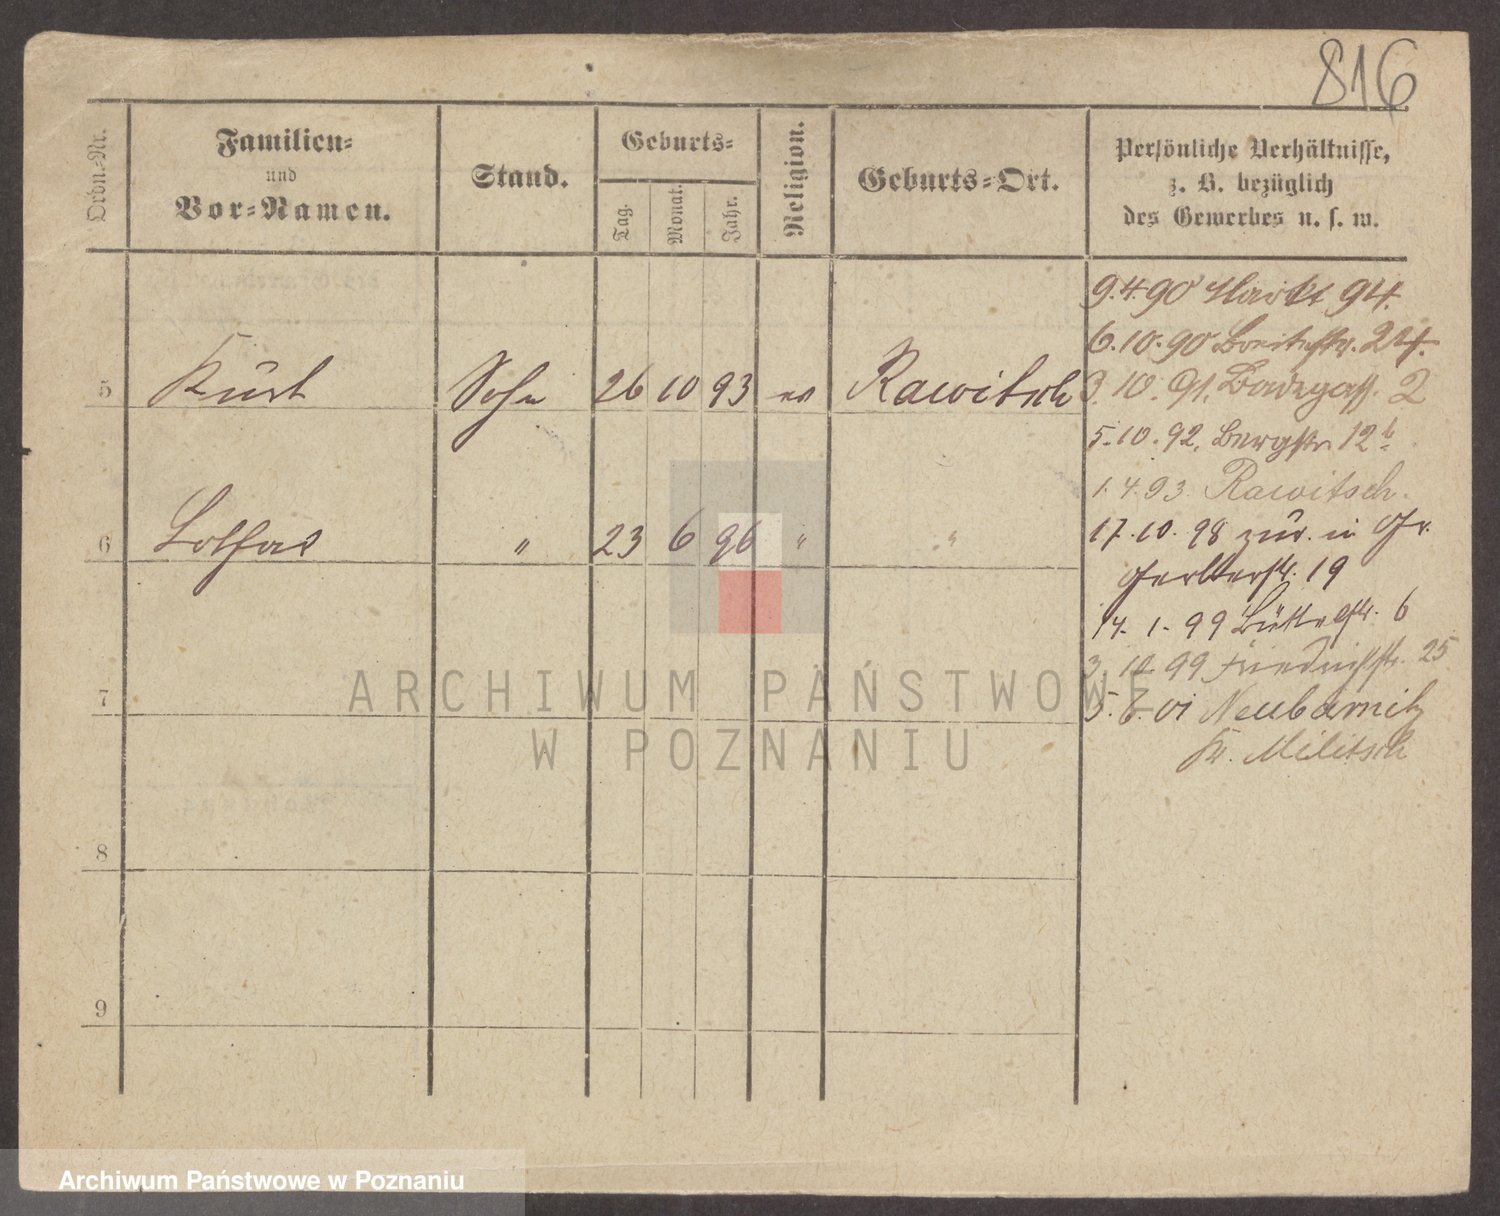 816
Ordn.-Nr.
Familien-
und
Vor-Namen.
Stand.
Geburts-
Tag.
Monat.
Jahr.
Religion.
Geburts-Ort.
Persönliche Verhältnisse,
z. B. bezüglich
des Gewerbes u. s. w.
5 Kurt Sohn 26 10 93 ev Rawitsch
6 Lothar " 23 6 96 " "
7
8
9
9.4.90 Markt 94.
6.10.90 Breitestr. 24.
3.10.91. Badegass. 2
5.10.92. Bergstr. 12 b
1.4.93. Rawitsch.
17.10.98 zur. in Gr.
Gerberstr. 19
14.1.99 Büttelstr. 6
3.10.99 Friedrichstr. 25
5.6.01 Neubarnitz
Kr. Militsch
ARCHIWUM PAŃSTWOWE
W POZNANIU
Archiwum Państwowe w Poznaniu